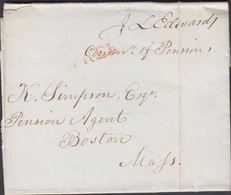 J L Edwards
Comr. of Pensions
FREE
K. Simpson, Esqr.
Pension Agent
Boston
Mass.